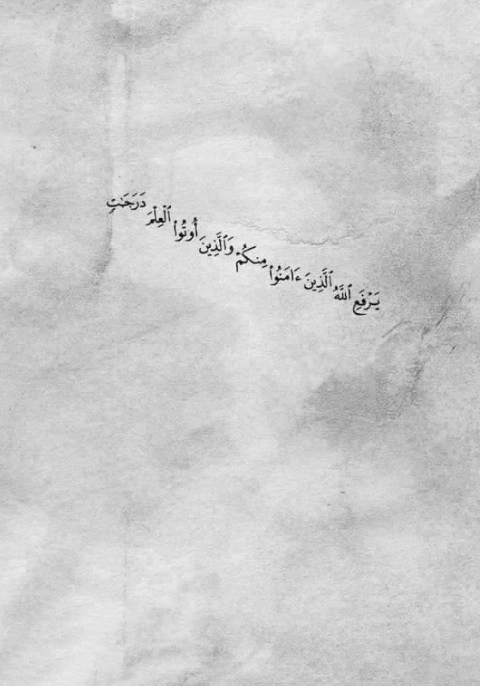 يَرْفَعِ ٱللَّهُ ٱلَّذِينَ ءَامَنُوا۟ مِنكُمْ وَٱلَّذِينَ أُوتُوا۟ ٱلْعِلْمَ دَرَجَـٰتٍ